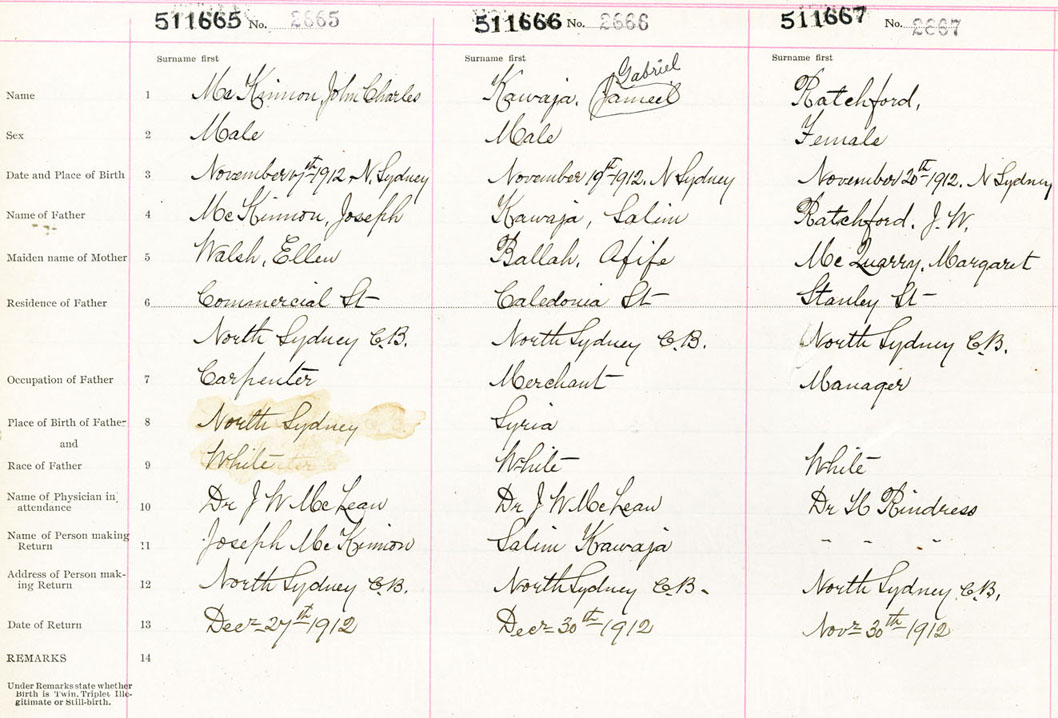 511665 No. 2665 511666 No. 2666 511667 No. 2667
Surname first Surname first Surname first
Gabriel
Name 1 McKinnon, John Charles Kawaja, Jameel Ratchford,
Sex 2 Male Male Female
Date and Place of Birth 3 November 7th 1912, N. Sydney November 19th 1912. N Sydney November 20th 1912. N Sydney
Name of Father 4 McKinnon, Joseph Kawaja, Salim Ratchford, J. W.
Maiden name of Mother 5 Walsh, Ellen Ballah, Afife McQuarry, Margaret
Residence of Father 6 Commercial St Caledonia St Stanley St
North Sydney C.B. North Sydney C.B. North Sydney C.B.
Occupation of Father 7 Carpenter Merchant Manager
Place of Birth of Father 8 North Sydney Syria
and
Race of Father 9 White White White
Name of Physician in attendance 10 Dr J W McLean Dr J W McLean Dr H Rindress
Name of Person making Return 11 Joseph McKinnon Salim Kawaja " " "
Address of Person mak-
ing Return 12 North Sydney C.B. North Sydney C.B. North Sydney C.B.
Date of Return 13 Decr 27th 1912 Decr 30th 1912 Novr 30th 1912
REMARKS 14
Under Remarks state whether
Birth is Twin, Triplet Ille-
gitimate or Still-birth.